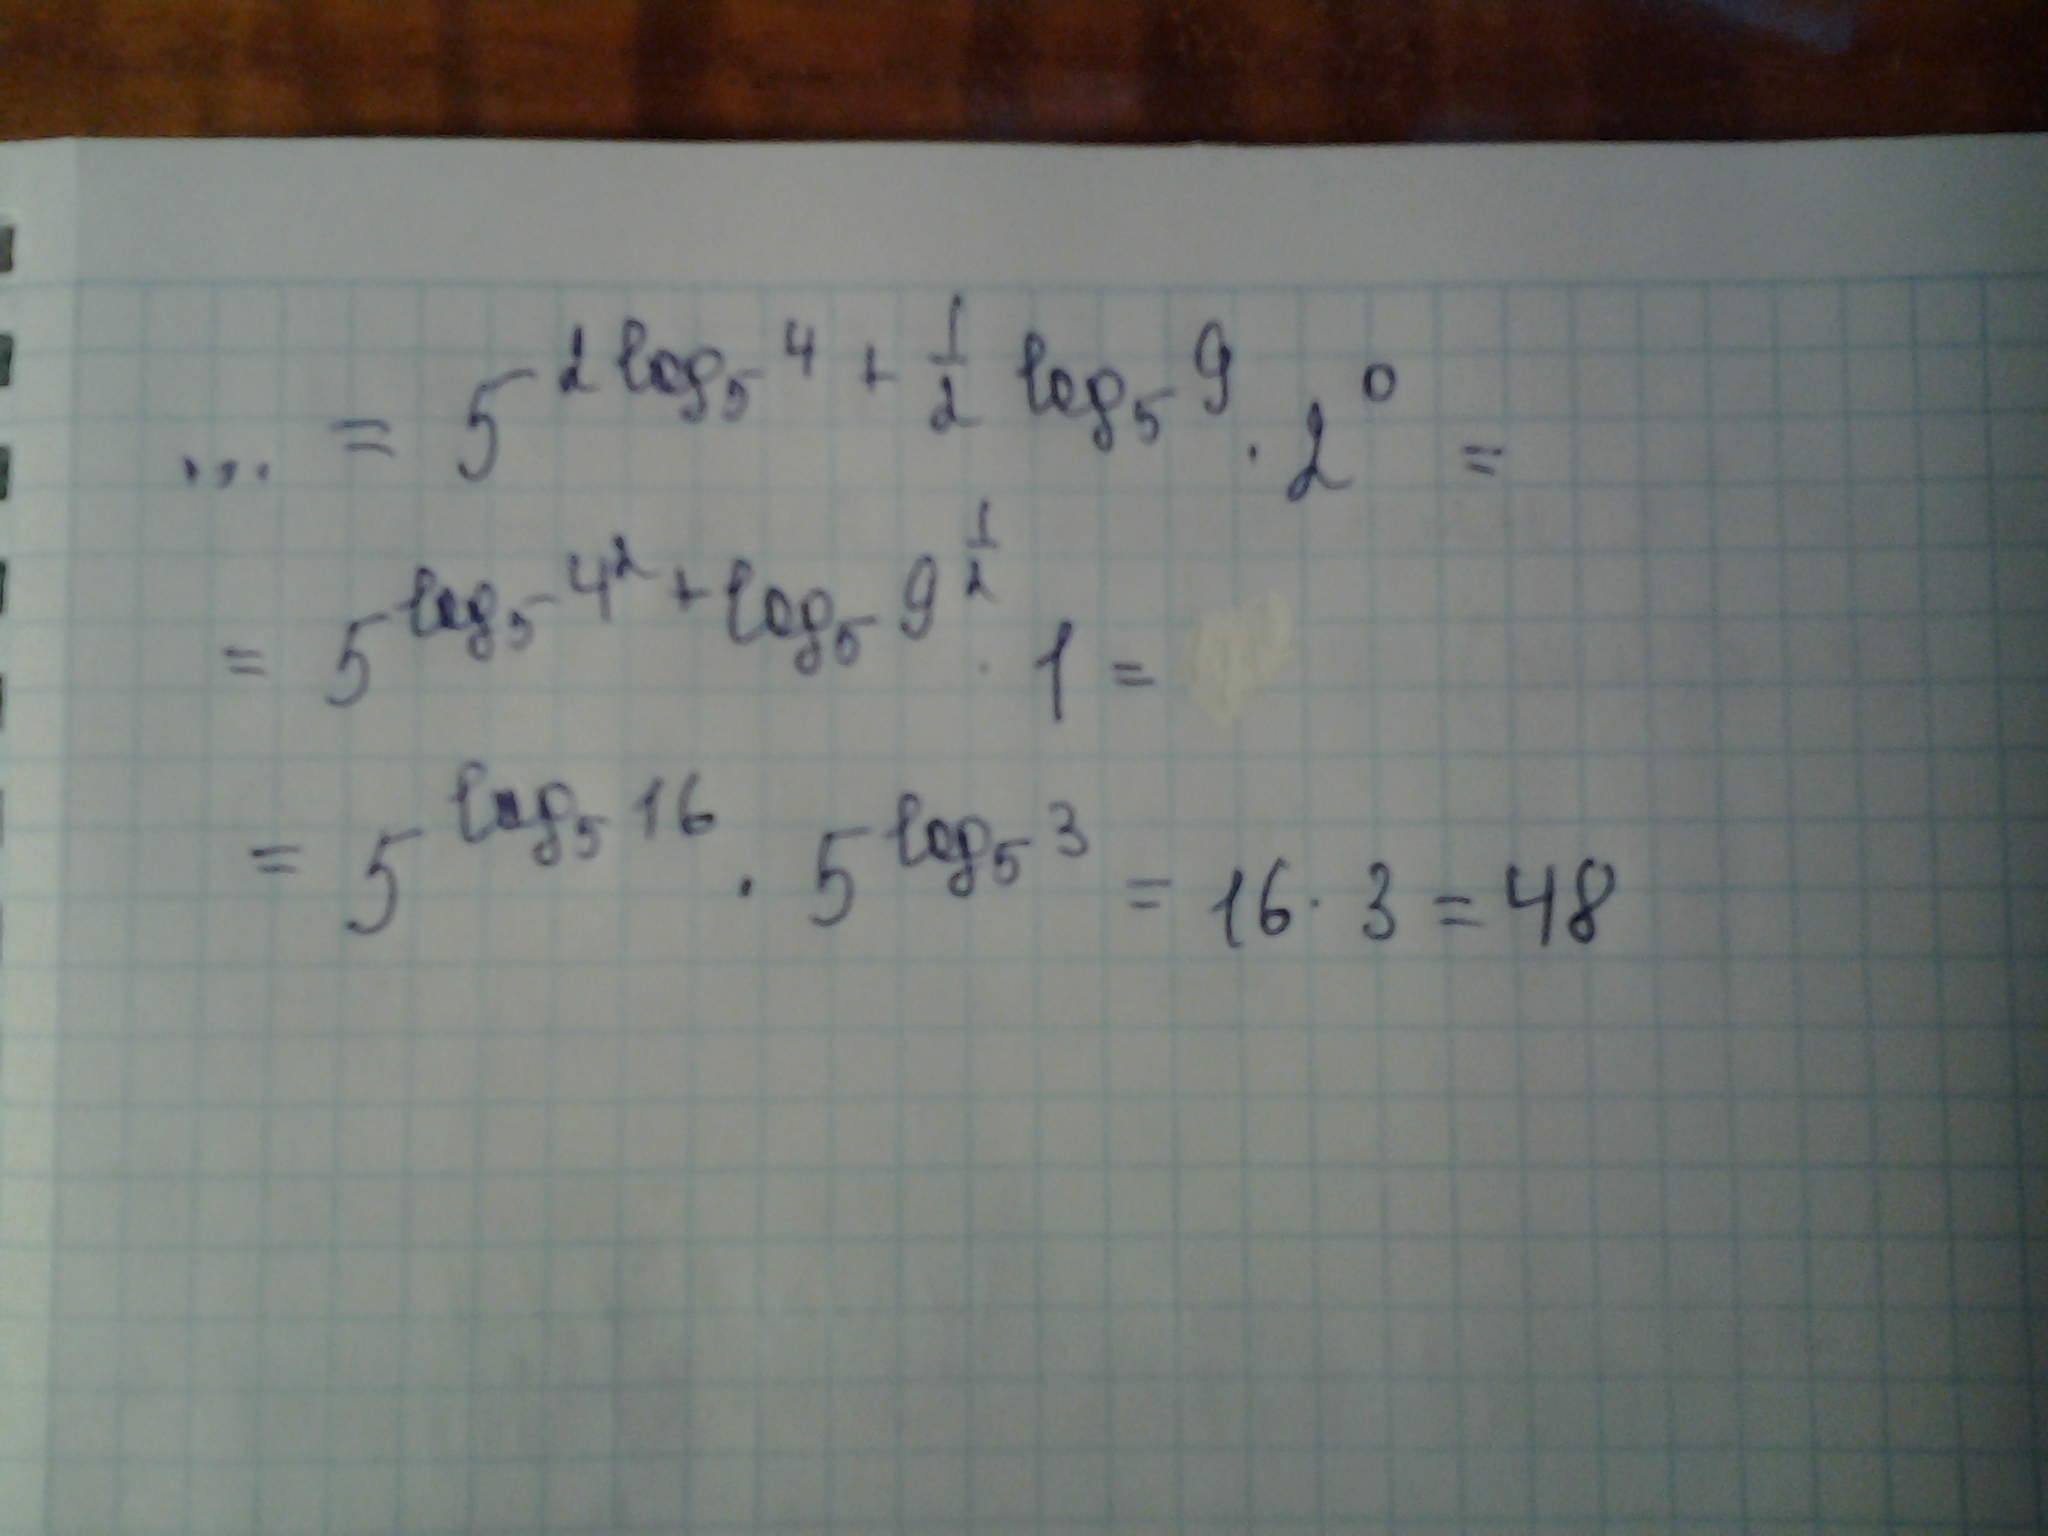 ... = 5^{2 log_5 4 + \frac{1}{2} log_5 9} · 2^0 =
= 5^{log_5 4^2 + log_5 9^{\frac{1}{2}}} · 1 =
= 5^{log_5 16} · 5^{log_5 3} = 16 · 3 = 48